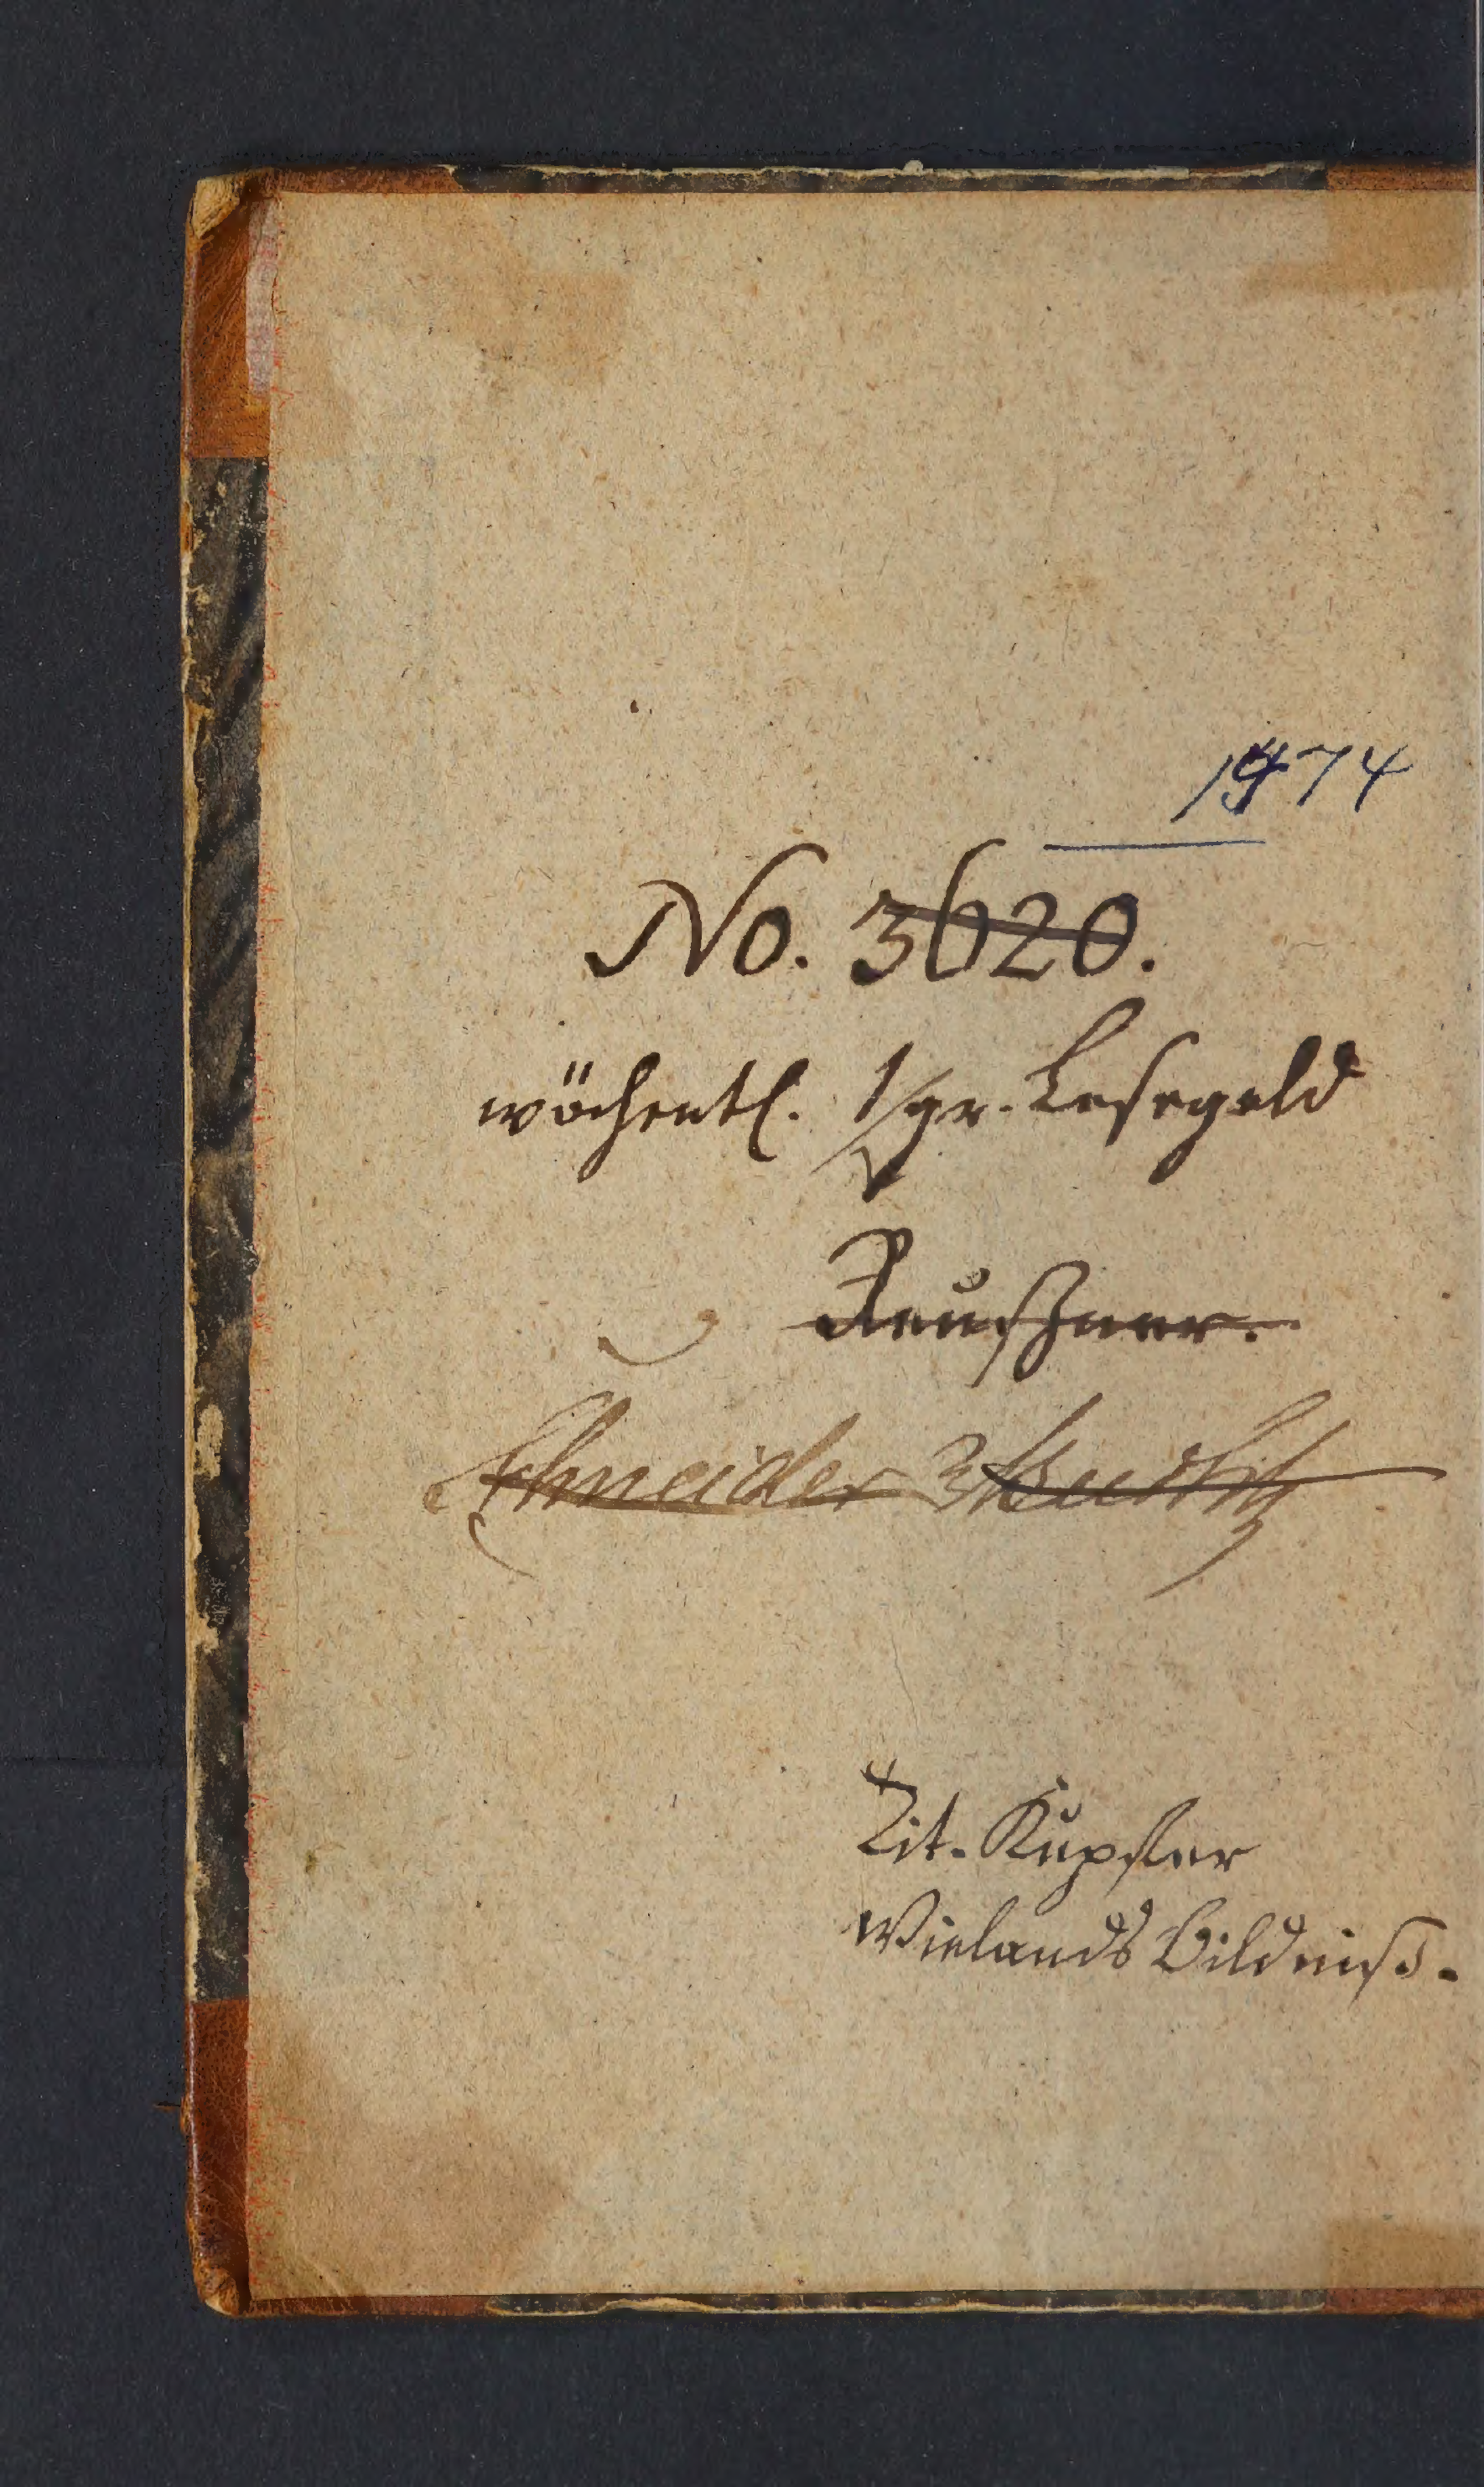 1974
No. 3620.
wöchentl. 1/gr. Lesegeld
Reußner.
Schneider
Tit. Kupfer
Wielands Bildniß.